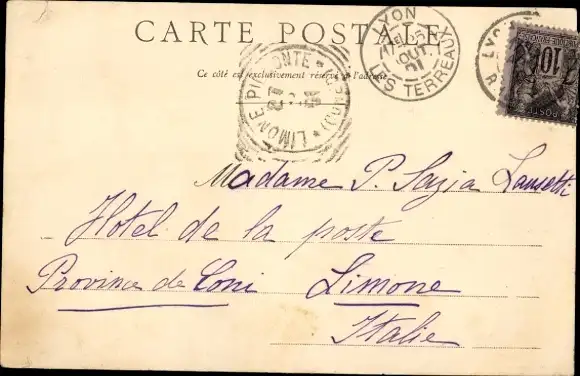 CARTE POSTALE
Ce côté est exclusivement réservé à l'adresse
LYON
LES TERREAUX
LIMONE PIEMONTE
10
POSTE
Madame P. Sazia Lansetti
Hotel de la poste
Province de Coni Limone
Italie